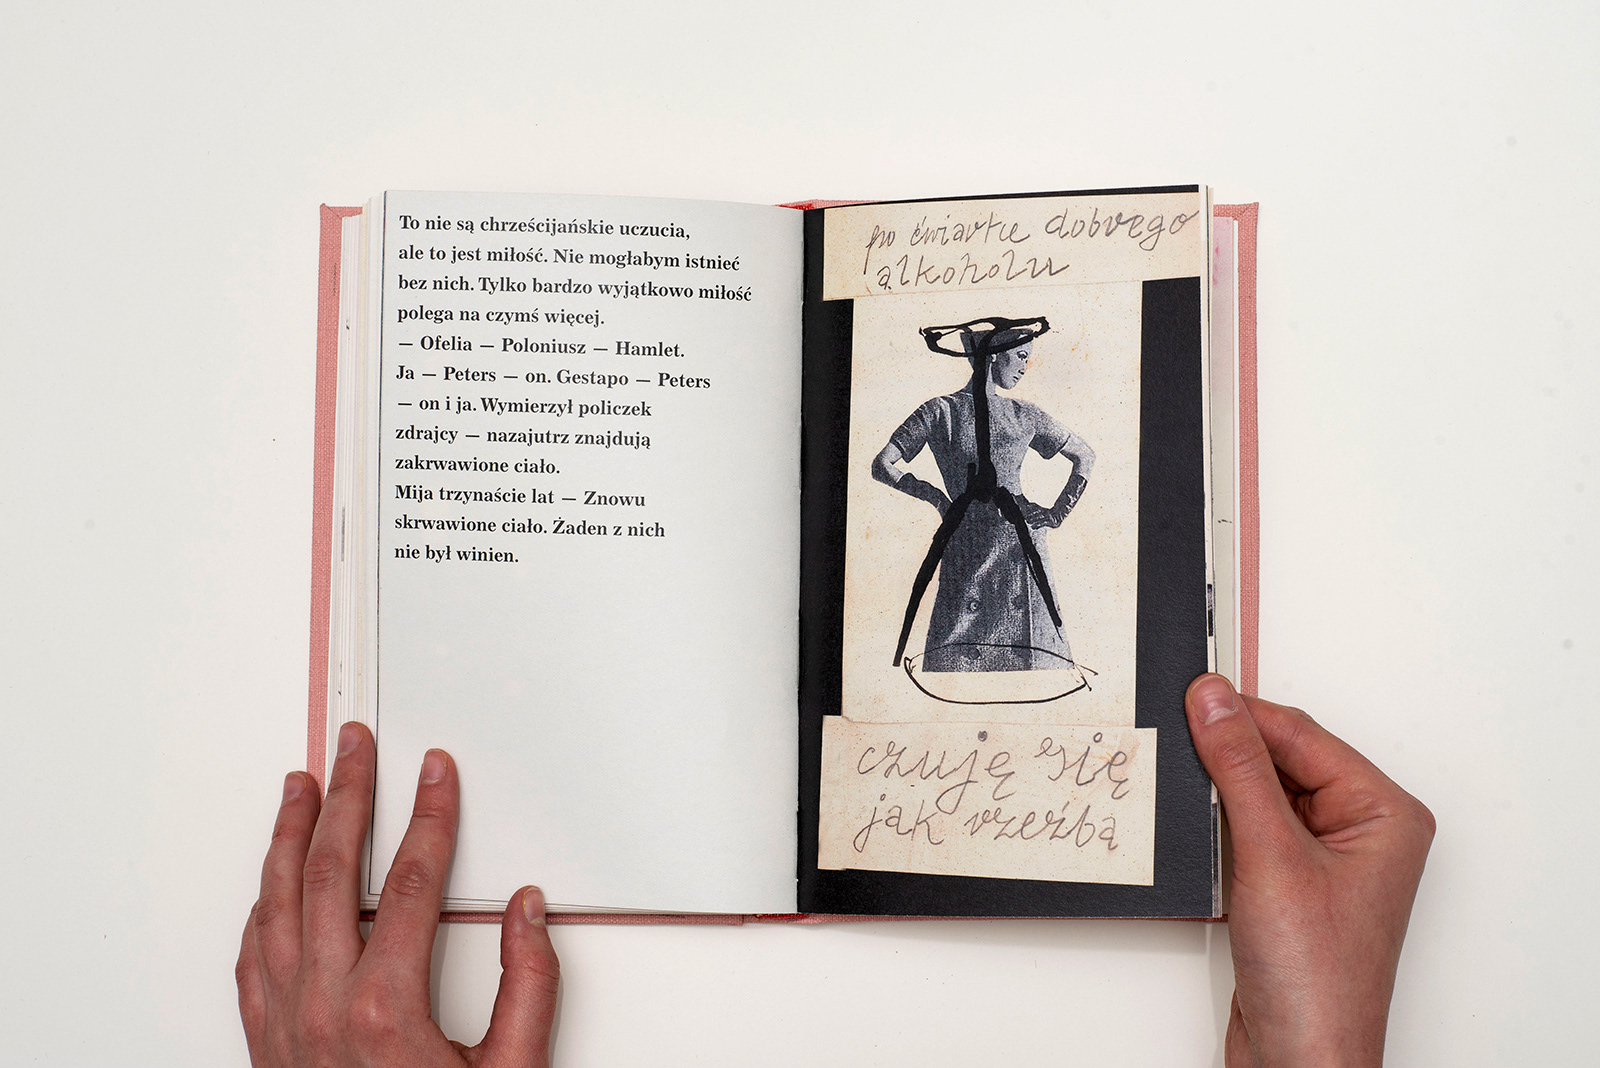 To nie są chrześcijańskie uczucia,
ale to jest miłość. Nie mogłabym istnieć
bez nich. Tylko bardzo wyjątkowo miłość
polega na czymś więcej.
— Ofelia — Poloniusz — Hamlet.
Ja — Peters — on. Gestapo — Peters
— on i ja. Wymierzył policzek
zdrajcy — nazajutrz znajdują
zakrwawione ciało.
Mija trzynaście lat — Znowu
skrwawione ciało. Żaden z nich
nie był winien.
po ćwiartce dobrego
alkoholu
czuję się
jak rzeźba